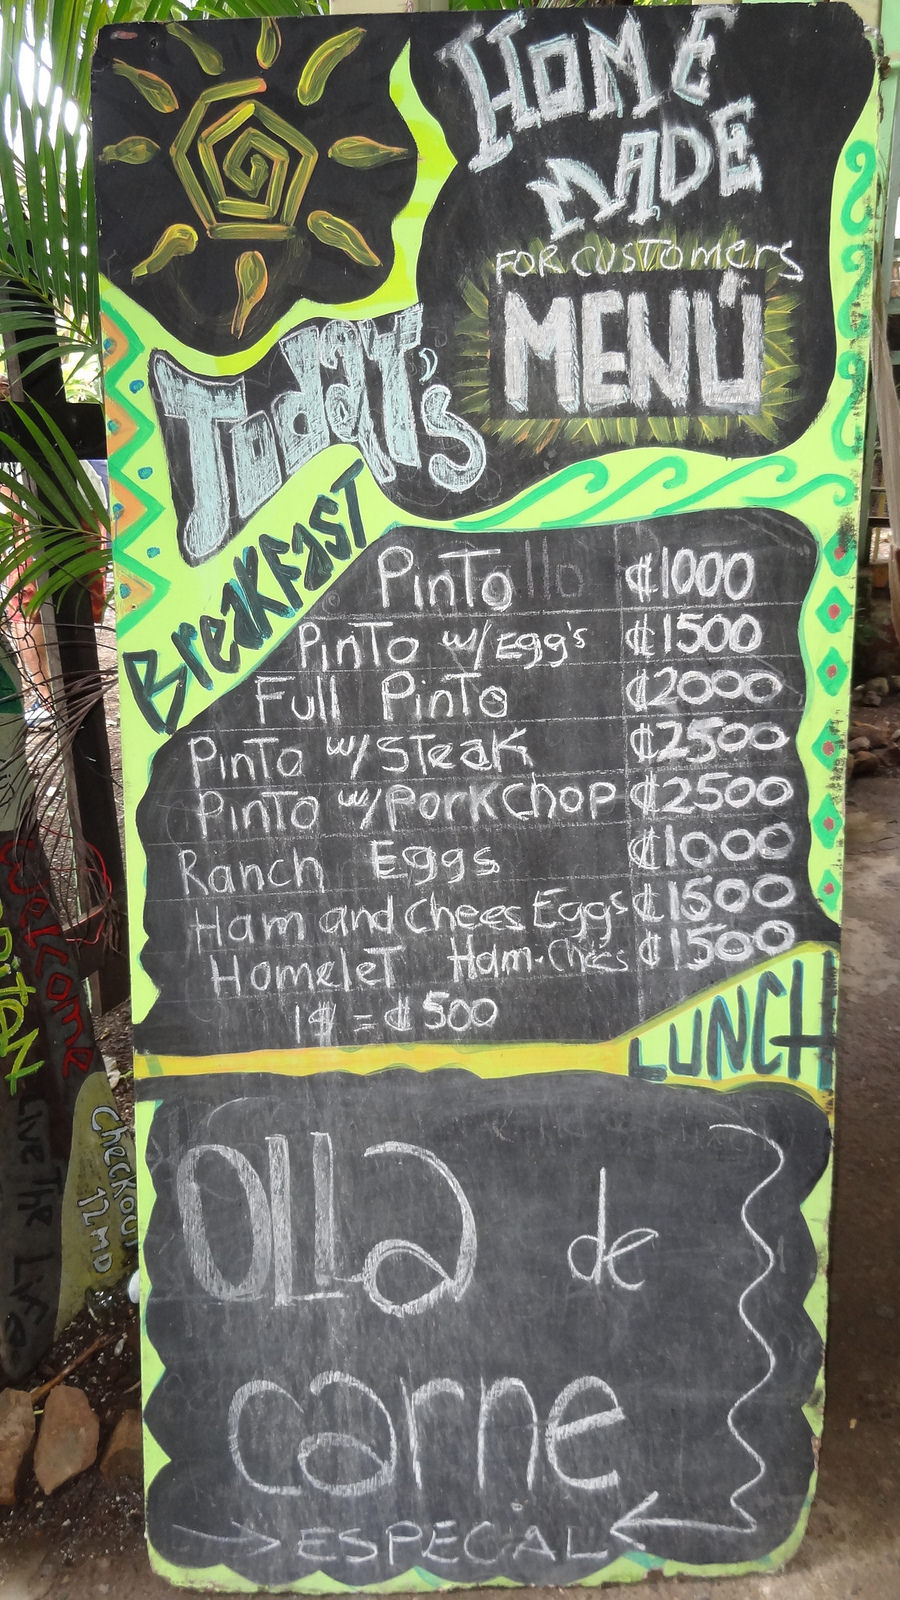 HOME
MADE
FOR CUSTOMERS
MENÚ
TODAY'S
BREAKFAST
PinTo ₡1000
PinTo w/Egg's ₡1500
Full PinTo ₡2000
PinTo w/STeaK ₡2500
PinTo w/PorkChop ₡2500
Ranch Eggs ₡1000
Ham and Chees Eggs ₡1500
HomeleT Ham-Chees ₡1500
1$ = ₡500
LUNCH
OLLa de
carne
ESPECIAL
Welcome
LIVE THE LIFE
CheckOUT
12MD